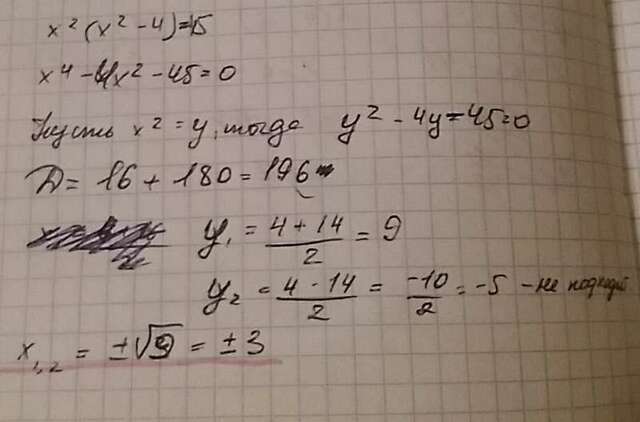 x² (x² - 4) = 45
x⁴ - 4x² - 45 = 0
Пусть x² = y, тогда y² - 4y - 45 = 0
D = 16 + 180 = 196
y₁ = (4 + 14)/2 = 9
y₂ = (4 - 14)/2 = -10/2 = -5 - не подходит
x₁,₂ = ±√9 = ±3